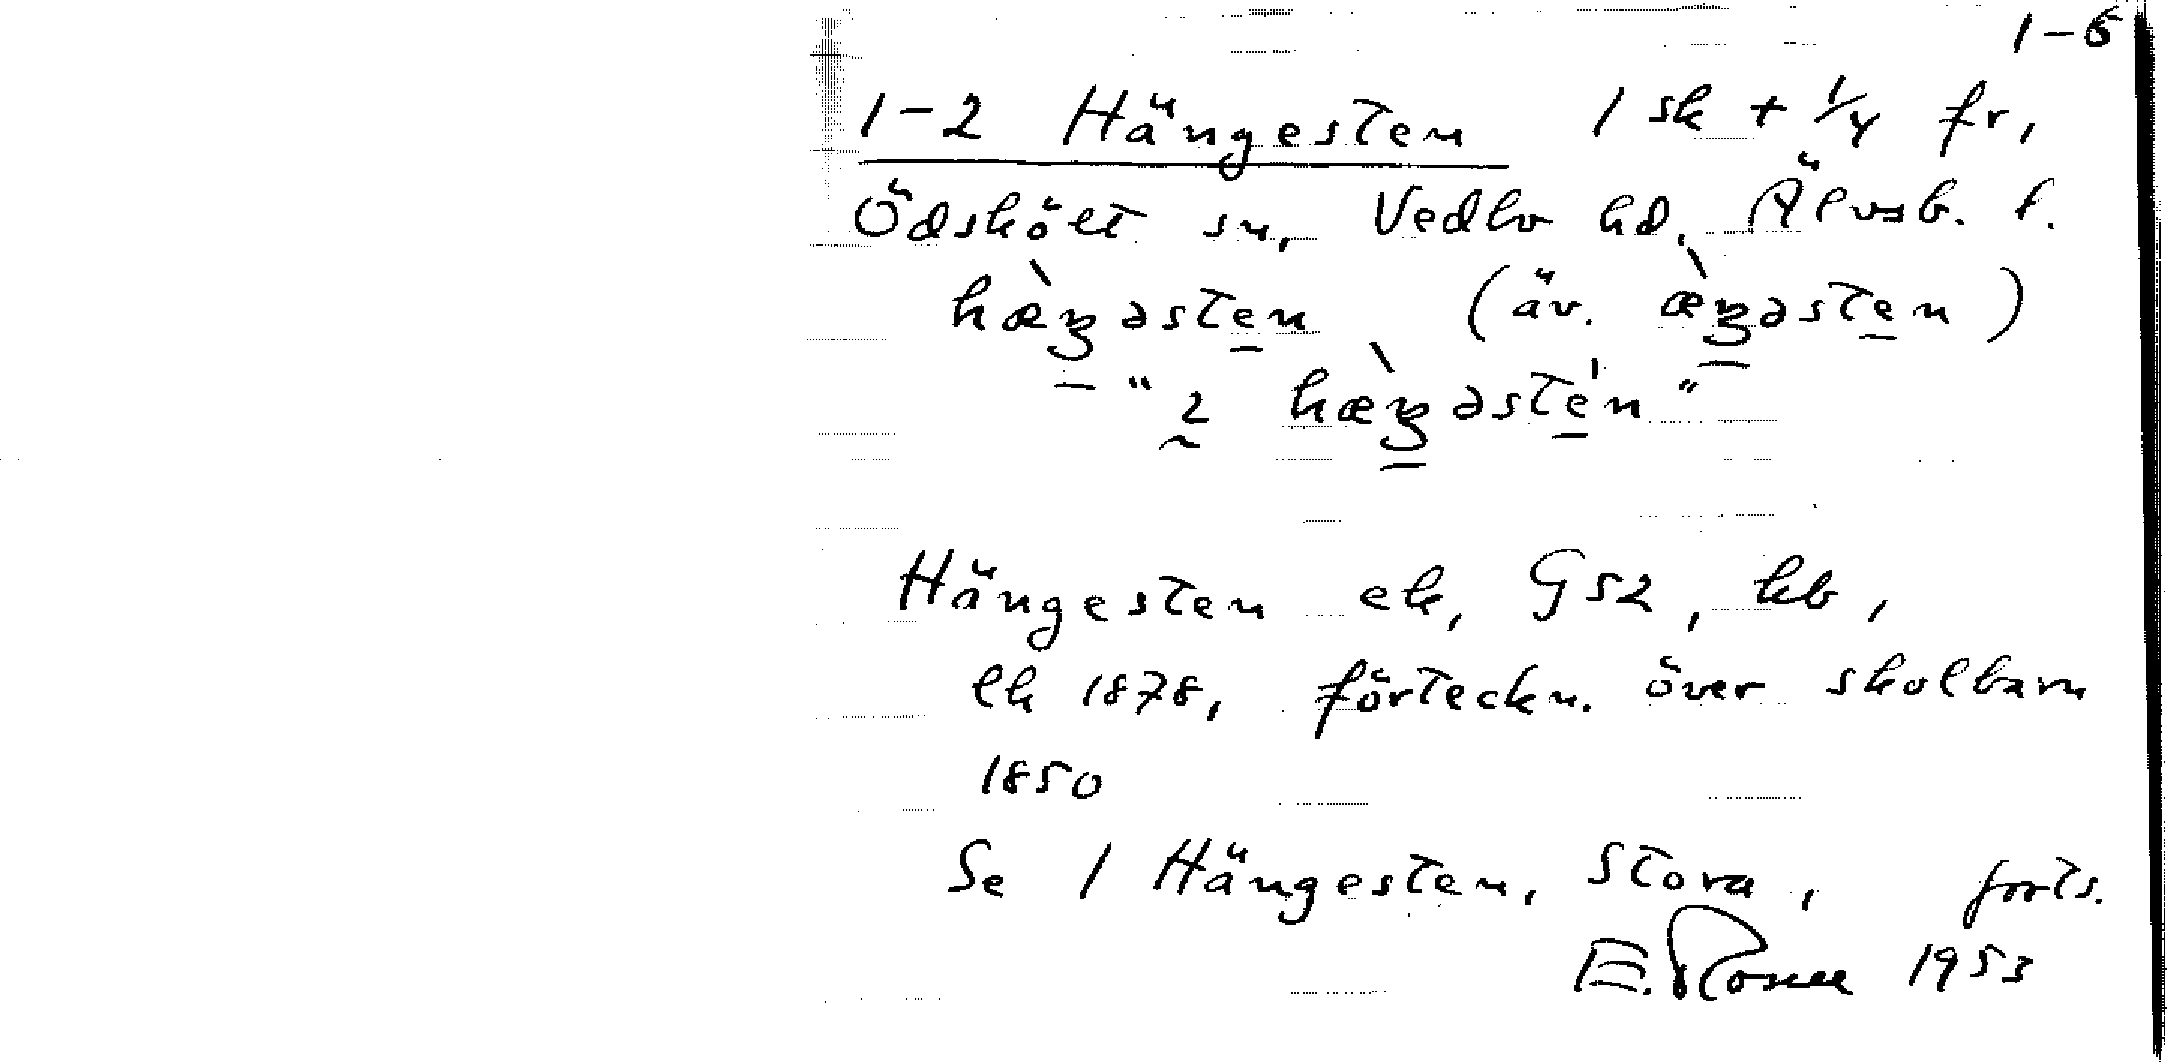 1-6
1-2 Hängesten 1 sk + 1/4 fr,
Ödskölt sn, Vedbo hd, Älvsb. l.
hæ̀ŋəsten (äv. æ̀ŋəsten)
"2 hæ̀ŋəsté̱n"
Hängesten ek, GS2, kb,
lk 1878, förteckn. över skolbarn
1850
Se 1 Hängesten, Stora, forts.
E. Rosell 1953